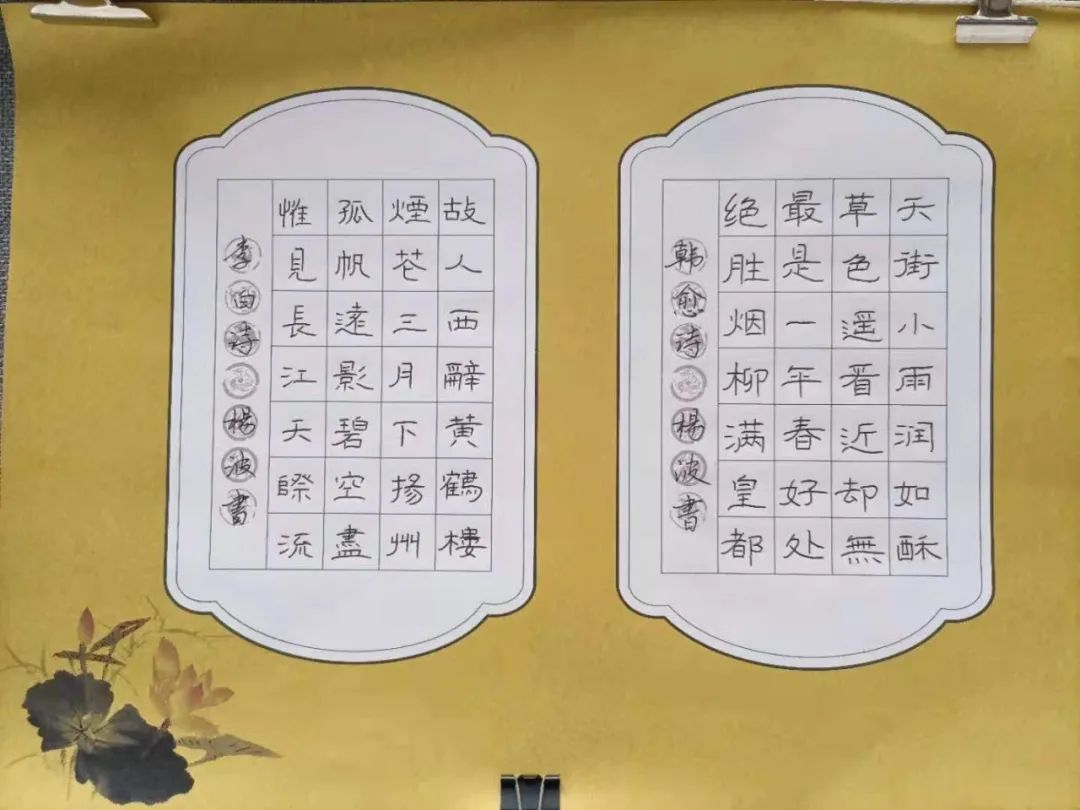 天街小雨润如酥
草色遥看近却無
最是一年春好处
绝胜烟柳满皇都
韩愈诗 楊波書
故人西辭黄鶴樓
煙花三月下揚州
孤帆遠影碧空盡
惟見長江天際流
李白诗 楊波書